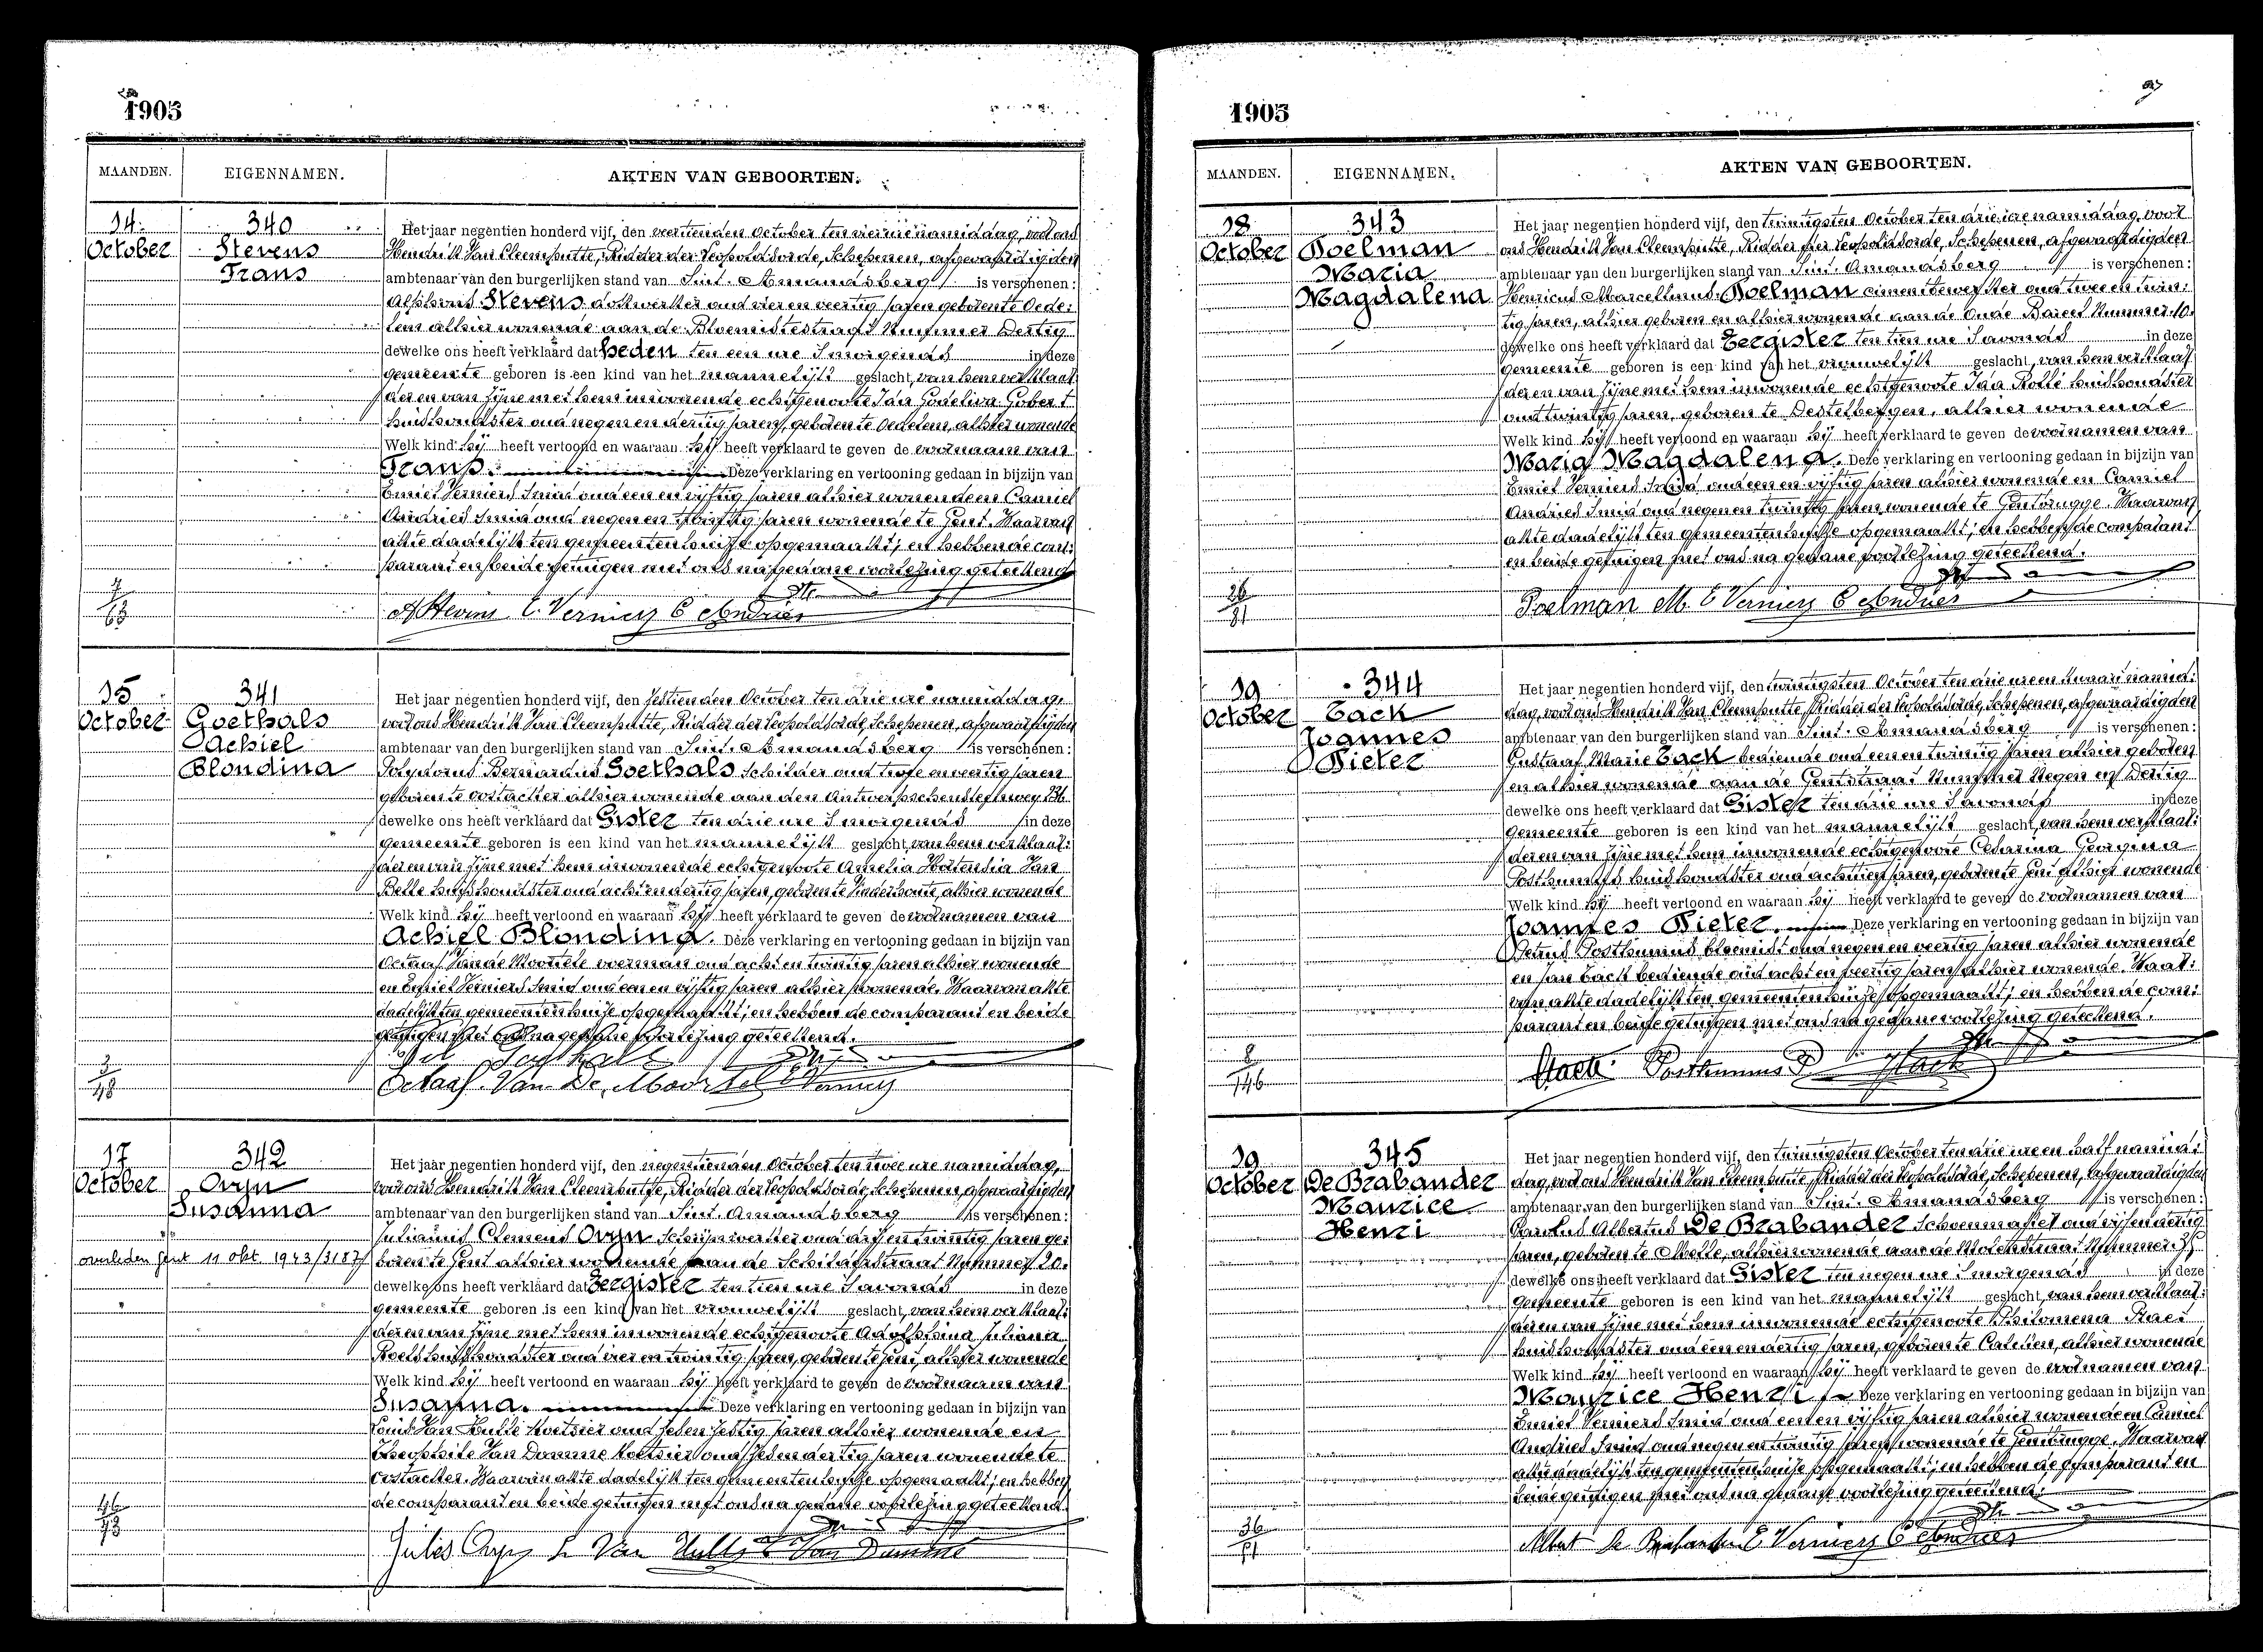 1905
MAANDEN. EIGENNAMEN. AKTEN VAN GEBOORTEN.
14 October
340
Stevens
Frans
Het jaar negentien honderd vijf, den veertienden October ten vier ure namiddag, voor ons
Hendrik Van Cleemputte, Ridder der Leopoldsorde, Schepenen, afgevaardigden
ambtenaar van den burgerlijken stand van Sint-Amandsberg is verschenen:
Alphons Stevens dokwerker oud vier en veertig jaren geboren te Oede:
lem alhier wonende aan de Bloemistestraat Nummer Dertig
dewelke ons heeft verklaard dat heden ten een ure 's morgends in deze
gemeente geboren is een kind van het mannelijk geslacht, van hem verklaar:
der en van zijne met hem inwonende echtgenoote Ida Godeliva Gobert
huishoudster oud negen en dertig jaren, geboren te Oedelem, alhier wonende
Welk kind hij heeft vertoond en waaraan hij heeft verklaard te geven de voornaam van
Frans. Deze verklaring en vertooning gedaan in bijzijn van
Emiel Verniers Smid oud een en vijftig jaren alhier wonende en Camiel
Andries Smid oud negen en twintig jaren wonende te Gent. Waarvan
akte dadelijk ten gemeentenhuize opgemaakt; en hebben de com:
parant en beide getuigen met ons na gedane voorlezing geteekend
7/63
A Stevens E Verniers C Andries
15 October
341
Goethals
Achiel
Blondina
Het jaar negentien honderd vijf, den zestienden October ten drie ure namiddag,
voor ons Hendrik Van Cleemputte, Ridder der Leopoldsorde, Schepenen, afgevaardigden
ambtenaar van den burgerlijken stand van Sint-Amandsberg is verschenen:
Polydorus Bernardus Goethals Schilder oud twee en veertig jaren
geboren te Oostacker alhier wonende aan den Antwerpschensteenweg
dewelke ons heeft verklaard dat Gister ten drie ure 's morgends in deze
gemeente geboren is een kind van het mannelijk geslacht, van hem verklaar:
der en van zijne met hem inwonende echtgenoote Amelia Hortensia Van
Belle huishoudster oud acht en dertig jaren, geboren te Vinderhoute, alhier wonende
Welk kind hij heeft vertoond en waaraan hij heeft verklaard te geven de voornamen van
Achiel Blondina. Deze verklaring en vertooning gedaan in bijzijn van
Octaaf Van de Moortele voerman oud acht en twintig jaren alhier wonende
en Emiel Verniers Smid oud een en vijftig jaren alhier wonende. Waarvan akte
dadelijk ten gemeentenhuize opgemaakt; en hebben de comparant en beide
getuigen met ons na gedane voorlezing geteekend.
3/48
Octaaf Van De Moortel E Verniers
17 October
342
Oryn
Susanna
overleden gent 11 okt 1943/3187
Het jaar negentien honderd vijf, den negentienden October ten twee ure namiddag,
voor ons Hendrik Van Cleemputte, Ridder der Leopoldsorde, Schepenen, afgevaardigden
ambtenaar van den burgerlijken stand van Sint-Amandsberg is verschenen:
Julianus Clemens Oryn Schrijnwerker oud drij en twintig jaren ge:
boren te Gent alhier wonende aan de Schildershraat Nummer 20.
dewelke ons heeft verklaard dat Eergister ten tien ure 's avonds in deze
gemeente geboren is een kind van het vrouwelijk geslacht, van hem verklaar:
der en van zijne met hem inwonende echtgenoote Adolphina Juliana
Roels huishoudster oud vier en twintig jaren, geboren te Gent, alhier wonende
Welk kind hij heeft vertoond en waaraan hij heeft verklaard te geven de voornaam van
Susanna. Deze verklaring en vertooning gedaan in bijzijn van
Louis Van Hulle Koetsier oud zeven zestig jaren alhier wonende en
Theophile Van Damme Koetsier oud zeven dertig jaren wonende te
Oostacker. Waarvan akte dadelijk ten gemeentenhuize opgemaakt; en hebben
de comparant en beide getuigen met ons na gedane voorlezing geteekend
46/73
Jules Oryn L Van Hulle T Van Damme
1905
MAANDEN. EIGENNAMEN. AKTEN VAN GEBOORTEN.
18 October
343
Poelman
Maria
Magdalena
Het jaar negentien honderd vijf, den twintigsten October ten drie ure namiddag, voor
ons Hendrik Van Cleemputte, Ridder der Leopoldsorde, Schepenen, afgevaardigden
ambtenaar van den burgerlijken stand van Sint-Amandsberg is verschenen:
Henricus Marcellinus Poelman cimentbewerker oud twee en twin:
tig jaren, alhier geboren en alhier wonende aan de Oude Bareel Nummer 10.
dewelke ons heeft verklaard dat Eergister ten tien ure 's avonds in deze
gemeente geboren is een kind van het vrouwelijk geslacht, van hem verklaar
der en van zijne met hem inwonende echtgenoote Ida Rollé huishoudster
oud twintig jaren, geboren te Destelbergen, alhier wonende
Welk kind hij heeft vertoond en waaraan hij heeft verklaard te geven de voornamen van
Maria Magdalena. Deze verklaring en vertooning gedaan in bijzijn van
Emiel Verniers Smid oud een en vijftig jaren alhier wonende en Camiel
Andries Smid oud negen en twintig jaren wonende te Gentbrugge. Waarvan
akte dadelijk ten gemeentenhuize opgemaakt; en hebben de comparant
en beide getuigen met ons na gedane voorlezing geteekend.
26/81
Poelman M. E Verniers C Andries
19 October
344
Tack
Joannes
Pieter
Het jaar negentien honderd vijf, den twintigsten October ten drie ure en kwart namid:
dag, voor ons Hendrik Van Cleemputte, Ridder der Leopoldsorde, Schepenen, afgevaardigden
ambtenaar van den burgerlijken stand van Sint-Amandsberg is verschenen:
Gustaaf Marie Tack bediende oud een en twintig jaren alhier geboren
en alhier wonende aan de Gentstraat Nummer Negen en Dertig
dewelke ons heeft verklaard dat Gister ten drie ure 's avonds in deze
gemeente geboren is een kind van het mannelijk geslacht, van hem verklaar:
der en van zijne met hem inwonende echtgenoote Cesarina Georgina
Posthumus huishoudster oud achttien jaren, geboren te Gent alhier wonende
Welk kind hij heeft vertoond en waaraan hij heeft verklaard te geven de voornamen van
Joannes Pieter. Deze verklaring en vertooning gedaan in bijzijn van
Petrus Posthumus bloemist oud negen en veertig jaren alhier wonende
en Jan Tack bediende oud acht en veertig jaren alhier wonende. Waar:
van akte dadelijk ten gemeentenhuize opgemaakt; en hebben de com:
parant en beide getuigen met ons na gedane voorlezing geteekend.
8/146
GTack Posthumus P JTack
19 October
345
De Brabander
Maurice
Henri
Het jaar negentien honderd vijf, den twintigsten October ten drie ure en half namid:
dag, voor ons Hendrik Van Cleemputte, Ridder der Leopoldsorde, Schepenen, afgevaardigden
ambtenaar van den burgerlijken stand van Sint-Amandsberg is verschenen:
Carolus Albertus De Brabander Schoenmaker oud vijf en dertig
jaren, geboren te Melle, alhier wonende aan de Molenstraat Nummer
dewelke ons heeft verklaard dat Gister ten negen ure 's morgends in deze
gemeente geboren is een kind van het mannelijk geslacht, van hem verklaar:
der en van zijne met hem inwonende echtgenoote Philomena Praet
huishoudster oud een en dertig jaren, geboren te Calcken, alhier wonende
Welk kind hij heeft vertoond en waaraan hij heeft verklaard te geven de voornamen van
Maurice Henri. Deze verklaring en vertooning gedaan in bijzijn van
Emiel Verniers Smid oud een en vijftig jaren alhier wonende en Camiel
Andries Smid oud negen en twintig jaren wonende te Gentbrugge. Waarvan
akte dadelijk ten gemeentenhuize opgemaakt; en hebben de comparant en
beide getuigen met ons na gedane voorlezing geteekend.
36/51
Albert De Brabander E Verniers C Andries